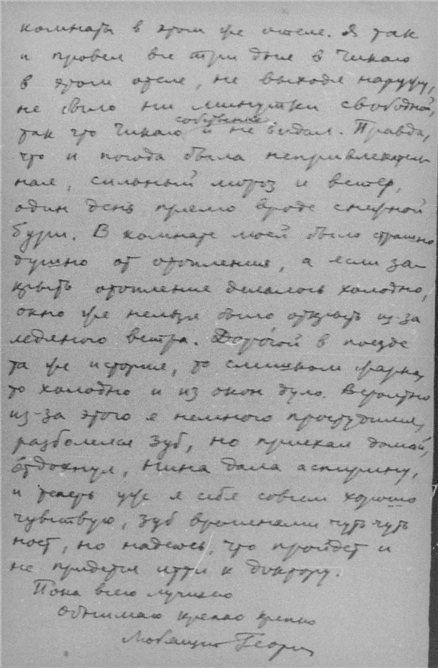 комнаты в этом же отеле. Я так
и провел все три дня в Чикаго
в этом отеле, не выходя наружу,
не было ни минутки свободной,
собственно
так что Чикаго и не видал. Правда,
что и погода была непривлекатель-
ная, сильный мороз и ветер,
один день прямо вроде снежной
бури. В комнате моей было страшно
душно от отопления, а если за-
крыть отопление делалось холодно,
окно же нельзя было открыть из-за
ледяного ветра. Дорогой в поезде
та же история, то слишком жарко,
то холодно и из окон дуло. Вероятно
из-за этого я немного простудился,
разболелся зуб, но приехал домой,
отдохнул, Нина дала аспирину,
и теперь уже я себя совсем хорошо
чувствую, зуб временами чуть чуть
ноет, но надеюсь, что пройдет и
не придется итти к доктору.
Пока всего лучшего
обнимаю крепко крепко
Любящий Георгий